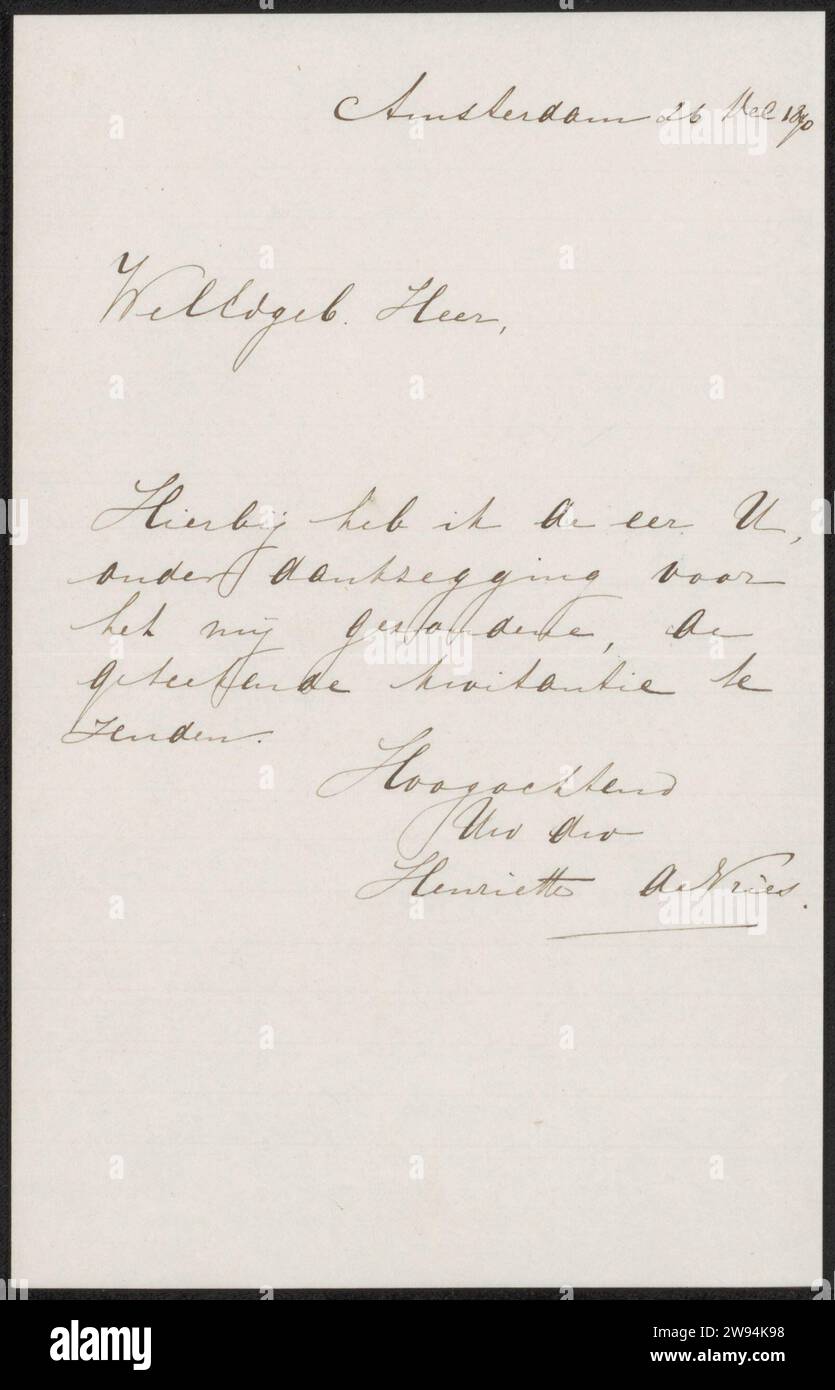 Amsterdam 26 Dec 1890
WelEdgeb. Heer,
Hierbij heb ik de eer U,
onder dankzegging voor
het mij gezondene, de
geteekende kwitantie te
zenden.
Hoogachtend
Uw dw
Henriette de Vries.
alamy
Image ID: 2W94L98
www.alamy.com